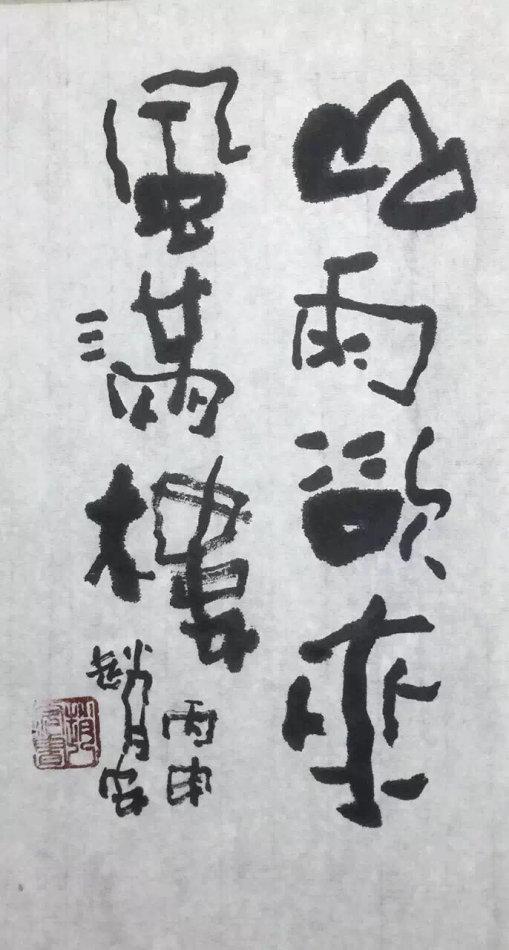 山雨欲來
風滿樓
丙申
趙月宏